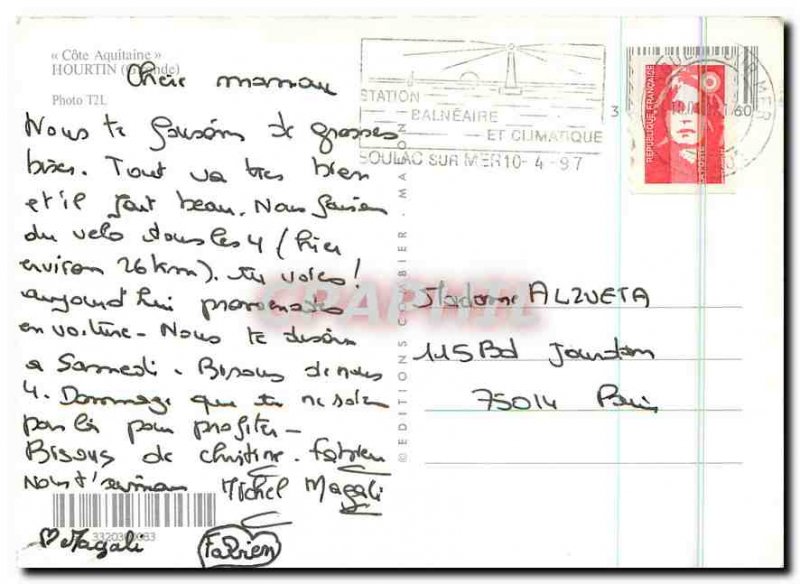 « Côte Aquitaine »
HOURTIN (Gironde)
Photo T2L
Chère maman
Nous te faisons de grosses
bises. Tout va très bien
et il fait beau. Nous faisons
du velo tous les 4 (hier
environ 26 km). tu voies!
aujourd'hui promenades
en voiture - Nous te disons
a Samedi. Bisous de nous
4. Dommage que tu ne sois
pas là pour profiter -
Bisous de christine. Fabien
Nous t'aimons Michel Magali
3320300083
♡ Magali Fabien
STATION
BALNÉAIRE
ET CLIMATIQUE
SOULAC SUR MER 10-4-97
RÉPUBLIQUE FRANÇAISE
LA POSTE
© EDITIONS COMBIER - MACON
CPAPHIL
Madame ALZUETA
115 Bd Jourdan
75014 Paris